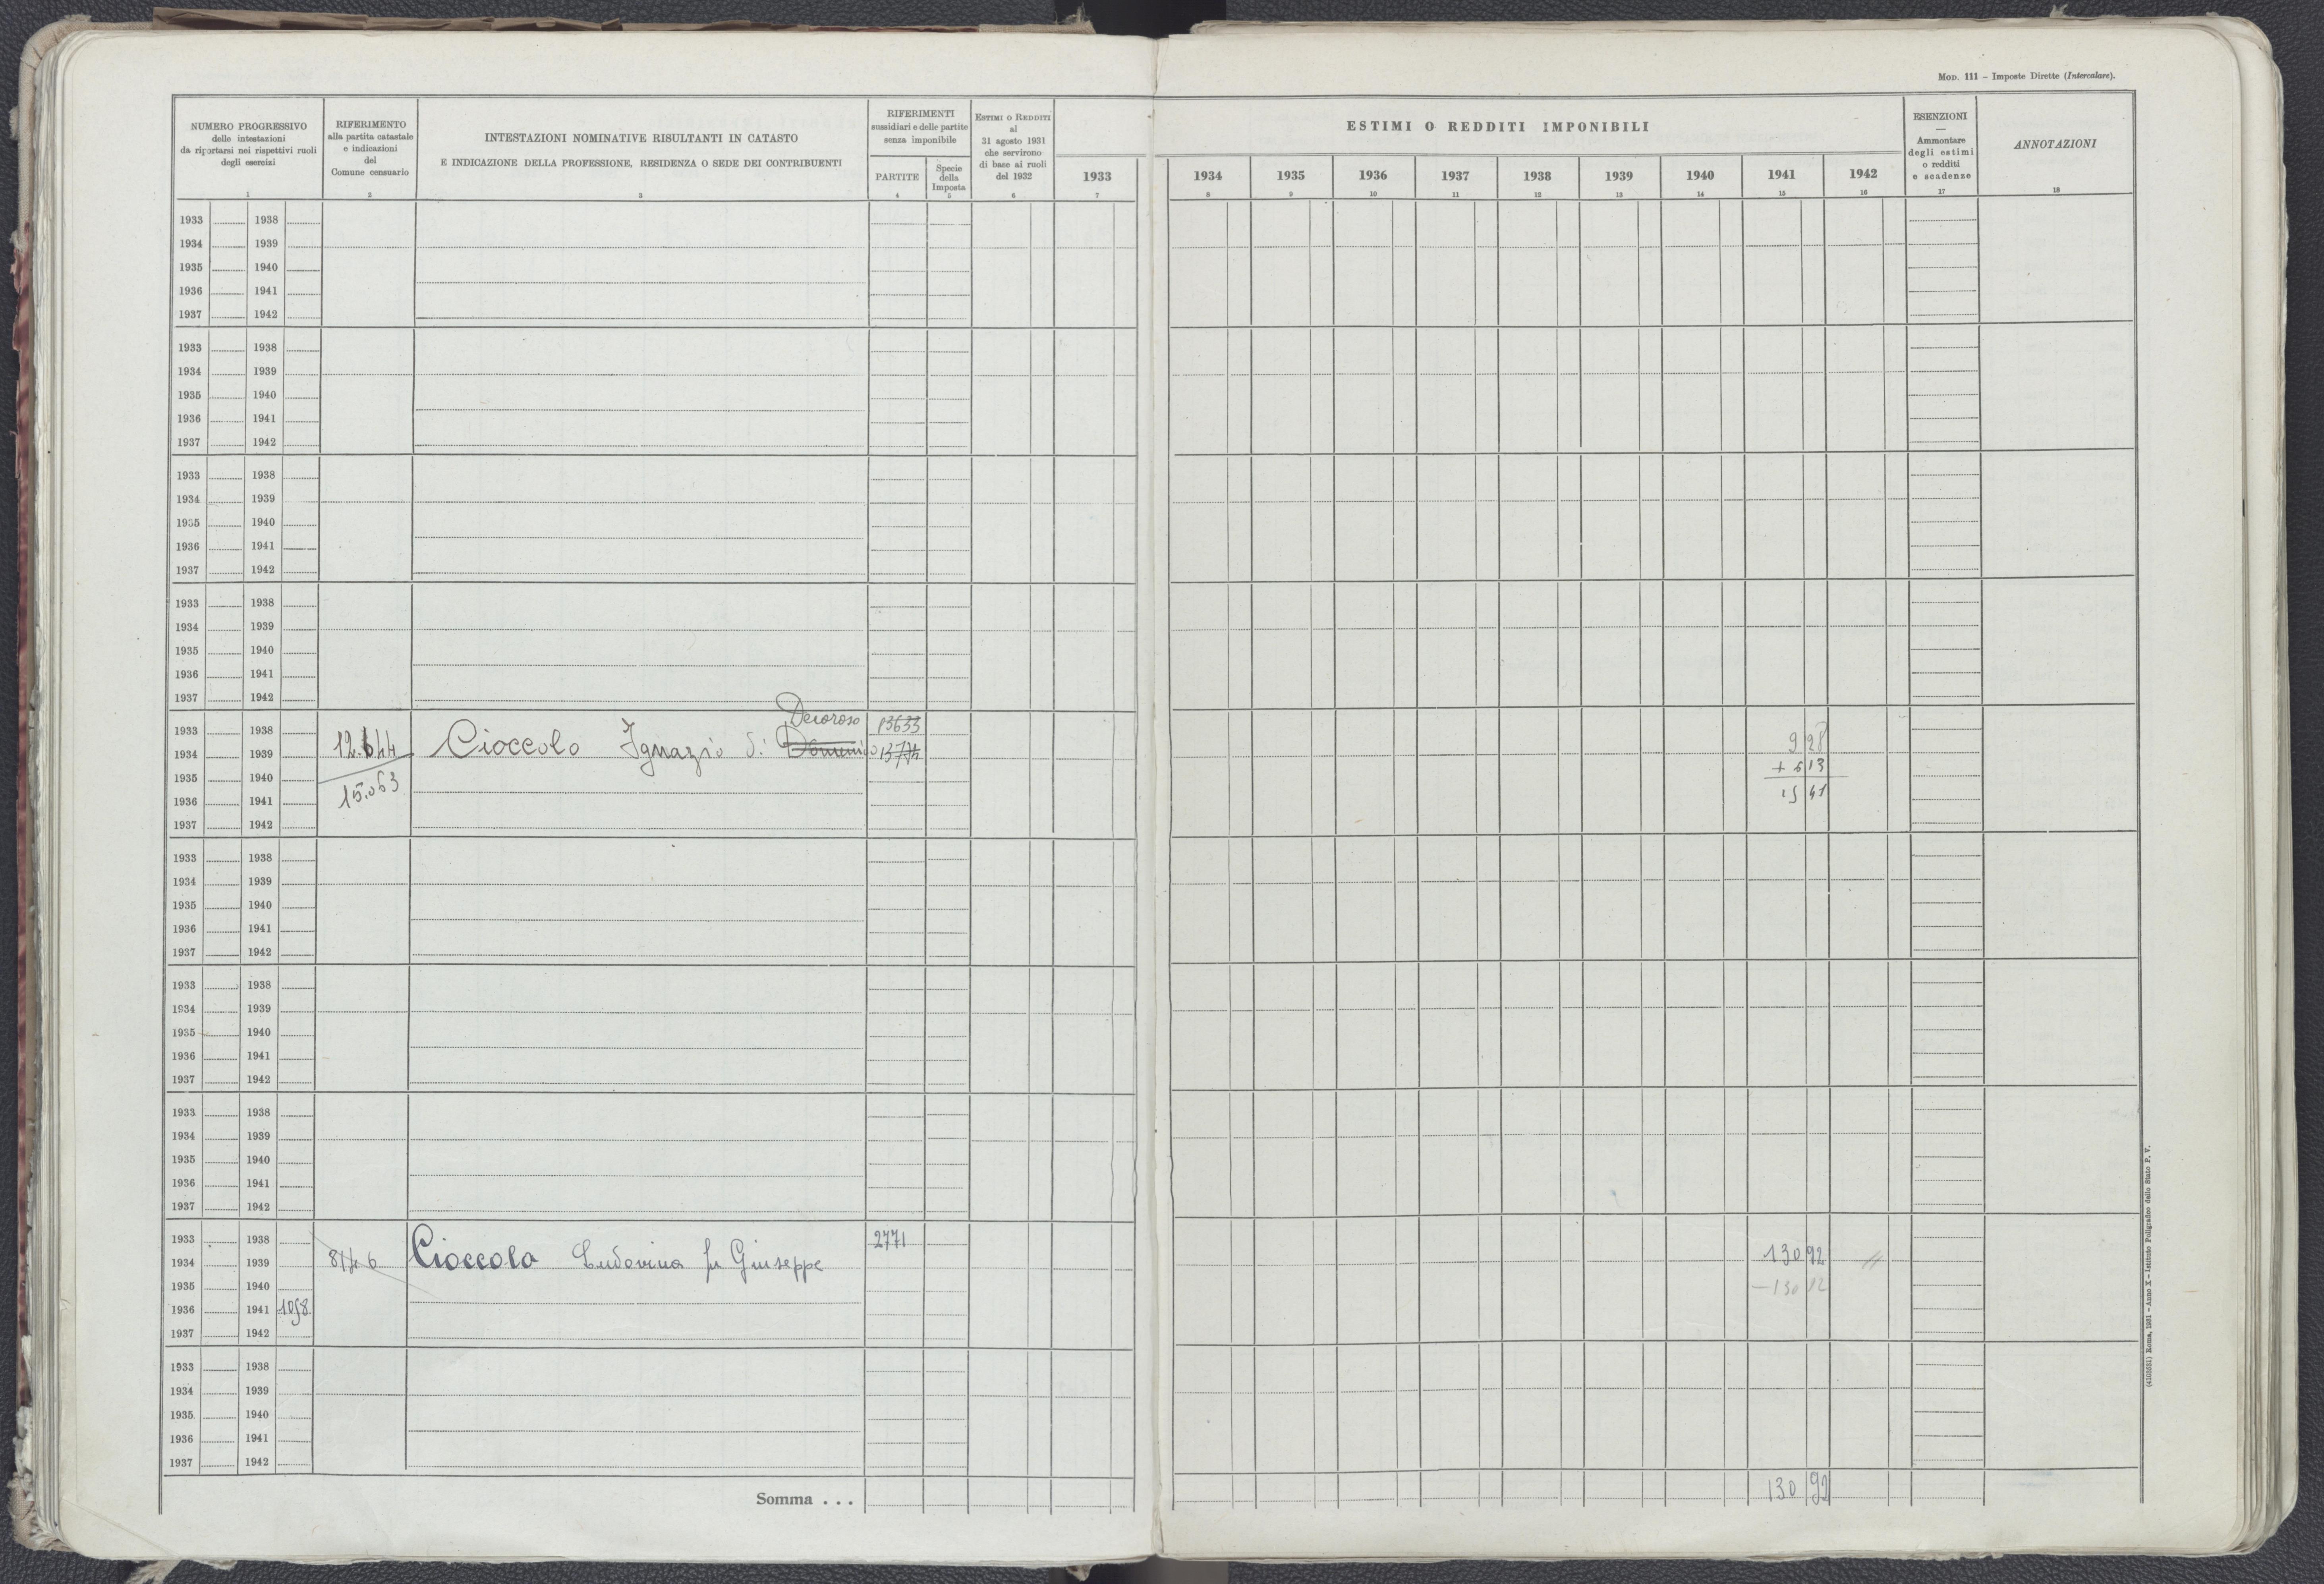 MOD. 111 – Imposte Dirette (Intercalare).
NUMERO PROGRESSIVO
delle intestazioni
da riportarsi nei rispettivi ruoli
degli esercizi
1
RIFERIMENTO
alla partita catastale
e indicazioni
del
Comune censuario
2
INTESTAZIONI NOMINATIVE RISULTANTI IN CATASTO
E INDICAZIONE DELLA PROFESSIONE, RESIDENZA O SEDE DEI CONTRIBUENTI
3
RIFERIMENTI
sussidiari e delle partite
senza imponibile
PARTITE
4
Specie
della
Imposta
5
ESTIMI O REDDITI
al
31 agosto 1931
che servirono
di base ai ruoli
del 1932
6
ESTIMI O REDDITI IMPONIBILI
1933 1934 1935 1936 1937 1938 1939 1940 1941 1942
7 8 9 10 11 12 13 14 15 16
ESENZIONI
—
Ammontare
degli estimi
o redditi
e scadenze
17
ANNOTAZIONI
18
1933 1938
1934 1939
1935 1940
1936 1941
1937 1942
1933 1938
1934 1939
1935 1940
1936 1941
1937 1942
1933 1938
1934 1939
1935 1940
1936 1941
1937 1942
1933 1938
1934 1939
1935 1940
1936 1941
1937 1942
Decoroso
1933 1938 13633
1934 1939 12.644 Cioccolo Ignazio di 9 28
1935 1940 15.063 + 6 13
1936 1941 15 41
1937 1942
1933 1938
1934 1939
1935 1940
1936 1941
1937 1942
1933 1938
1934 1939
1935 1940
1936 1941
1937 1942
1933 1938
1934 1939
1935 1940
1936 1941
1937 1942
1933 1938 2771
1934 1939 Cioccola Ludovina fu Giuseppe 130 92 //
1935 1940 — 130 92
1936 1941 1058
1937 1942
1933 1938
1934 1939
1935 1940
1936 1941
1937 1942
Somma . . . 130 92
(4103531) Roma, 1931 – Anno X – Istituto Poligrafico dello Stato P. V.